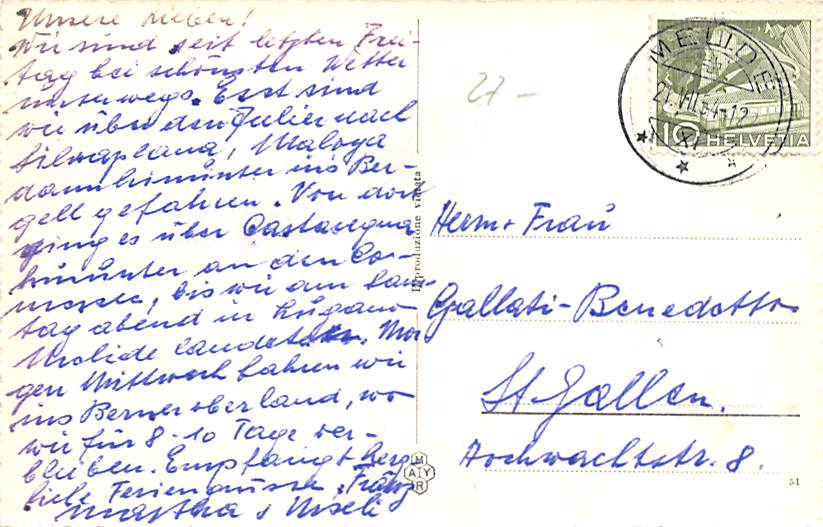 Unsere Lieben!
Wir sind seit letzten Frei-
tag bei schönstem Wetter
unterwegs. Erst sind
wir über den Julier nach
Silvaplana, Maloja
dann hinunter ins Ber-
gell gefahren. Von dort
ging es über Castasegna
hinunter an den Co-
mersee, bis wir am Sam-
stag abend in Lugano-
landeten. Mor
gen Mittwoch fahren wir
ins Berner oberland, wo
wir für 8-10 Tage ver-
bleiben. Empfangt herz
liche Feriengrüsse
Martha & Urseli
Riproduzione vietata
MAYR
27 -
MELIDE
HELVETIA
10
Herrn & Frau
Gallati-Benedetto
St. Gallen.
Hochwachtstr. 8.
51